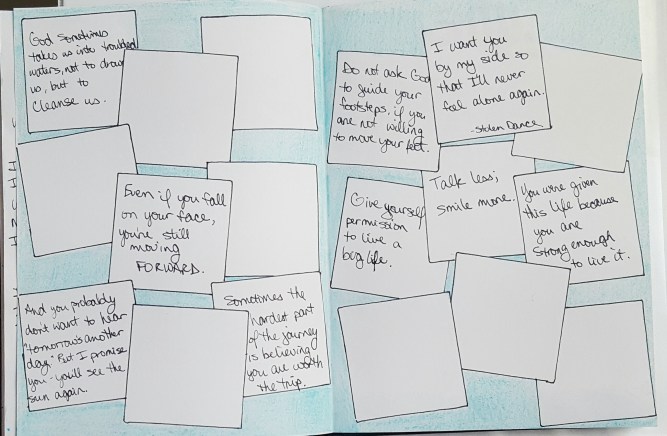 God sometimes
takes us into troubled
waters, not to drown
us, but to
cleanse us.
Even if you fall
on your face,
you're still
moving
FORWARD.
And you probably
don't want to hear
"tomorrow's another
day." But I promise
you - you'll see the
sun again.
Sometimes the
hardest part
of the journey
is believing
you are worth
the trip.
Do not ask God
to guide your
footsteps, if you
are not willing
to move your feet.
I want you
by my side so
that I'll never
feel alone again.
-Stolen Dance
Give yourself
permission
to live a
big life.
Talk less;
smile more.
You were given
this life because
you are
strong enough
to live it.